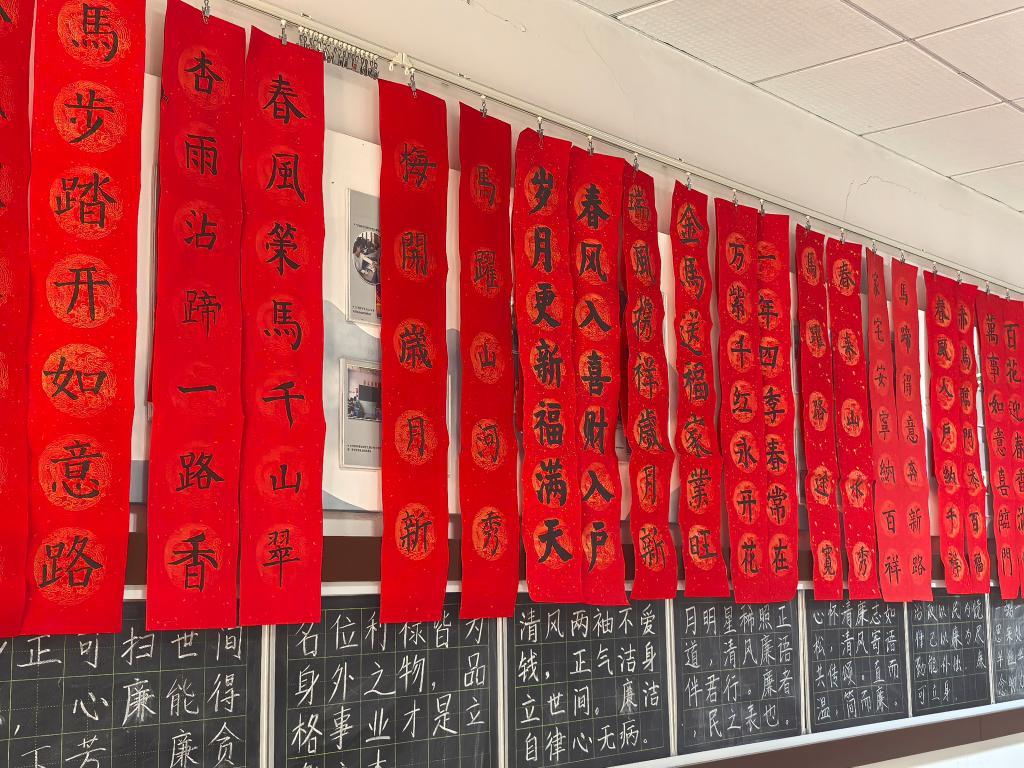 馬步踏开如意路
杏雨沾蹄一路香
春風榮馬千山翠
梅開歲月新
馬躍山河秀
岁月更新福满天
春风入喜财入户
瑞風擕祥歲月新
金馬送福家業旺
万紫千红永开花
一年四季春常在
馬躍
路
寬
春
春山
水秀
家宅安寧納百祥
馬蹄得意奔新路
春風入户納千祥
萬事如意喜臨門
百花迎春香
正可扫世间
心廉能得
廉贪
名位利禄皆为
身外之物，品
格事业才是立
清风两袖不爱
钱，正气洁身
立世间。廉洁
自律心无病。
月明星稀照正
道，清风廉语
件君行。廉者
，民之表也。
心怀清廉志如
松，清风寄语
主传颂。直而
温，简而廉。